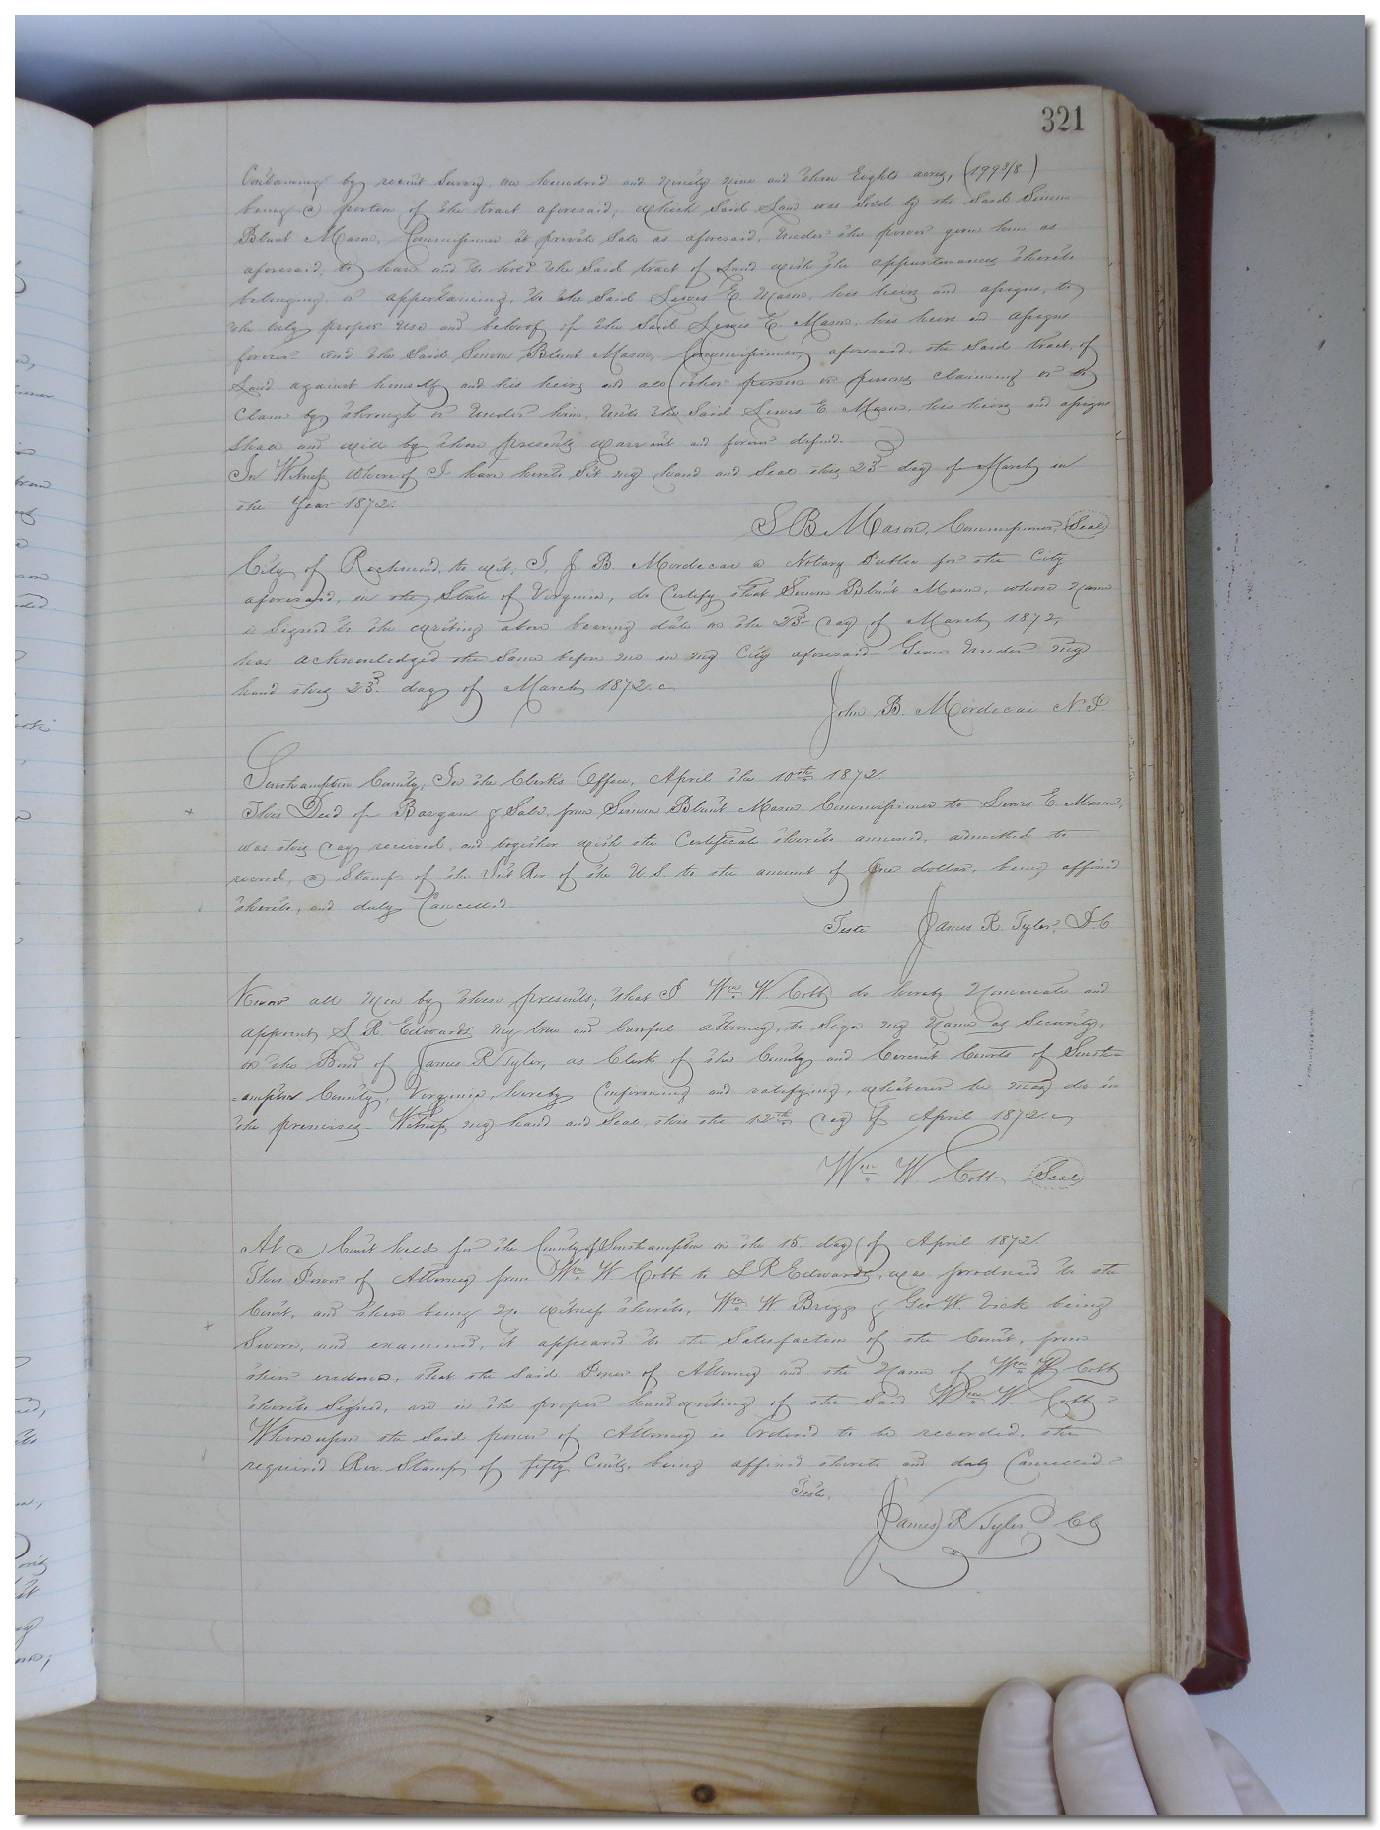 321
Containing by recent Survey, one hundred and Ninety Nine and three Eights acres, (199 3/8)
being a portion of the tract aforesaid, which Said Land was Sold by the Said Simon
Blunt Mason, Commissioner at private Sale as aforesaid, Under the power given him as
aforesaid, to have and to hold the Said tract of Land with the appurtenances thereto
belonging, or appertaining, to the Said Lewis E. Mason, his heirs and assigns, to
the only proper use and behoof of the Said Lewis E. Mason, his heirs and assigns
forever And the Said Simon Blunt Mason, Commissioner, aforesaid, the Said tract of
Land against himself and his heirs and all other person or persons claiming or to
Claim by through or Under him, Unto the Said Lewis E. Mason, his heirs and assigns
Shall and will by these presents warrant and forever defend.
In Witness whereof I have hereto Set my hand and Seal this 23d day of March in
the Year 1872.
S B Mason, Commissioner, (Seal)
City of Richmond, to wit, I, J B. Mordecai a Notary Public for the City
aforesaid, in the State of Virginia, do Certify that Simon Blunt Mason, whose Name
is Signed to the writing above bearing date on the 23d day of March 1872,
has acknowledged the Same before me in my City aforesaid. Given Under my
hand this 23d day of March 1872.
John B. Mordecai N. P.
Southampton County, In the Clerk's Office, April the 10th 1872.
This Deed of Bargain & Sale, from Simon Blunt Mason Commissioner to Lewis E. Mason,
was this day received, and together with the Certificate thereto annexed, admitted to
record, a Stamp of the Int Rev of the U.S. to the amount of One dollar, being affixed
thereto, and duly Cancelled.
Teste James R. Tyler, D.C
Know all Men by these presents, that I Wm. W. Cobb do hereby Nominate and
appoint L R Edwards my true and lawful attorney, to Sign my Name as Security,
on the Bond of James R Tyler, as Clerk of the County and Circuit Courts of South-
-ampton County, Virginia, hereby Confirming and ratifying, whatever he may do in
the premises. Witness my hand and Seal this the 12th day of April 1872.
Wm. W. Cobb (Seal)
At a Court held for the County of Southampton on the 15. day of April 1872.
This Power of Attorney from Wm. W Cobb to L R Edwards, was produced to the
Court, and there being no witness thereto, Wm. W Briggs & Geo W. Vick being
Sworn, and examined, it appeared to the Satisfaction of the Court, from
their evidence, that the Said Power of Attorney and the Name of Wm. W. Cobb
thereto Signed, are in the proper handwriting of the Said Wm. W. Cobb
Whereupon the Said power of Attorney is Ordered to be recorded, the
required Rev. Stamp of fifty Cents, being affixed thereto and duly Cancelled
Teste,
James R Tyler CC